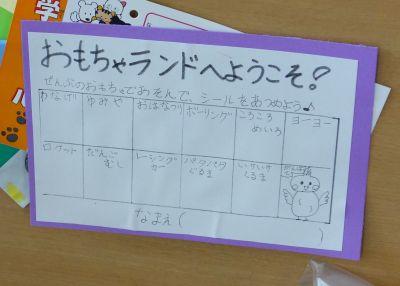 おもちゃランドへようこそ!
ぜんぶのおもちゃであそんで、シールをあつめよう♪
わなげ ゆみや おはなつり ボーリング ころころ ヨーヨー
めいろ
ロケット だんご レーシング パタパタ
むし カー ぐるま くるま
なまえ( )